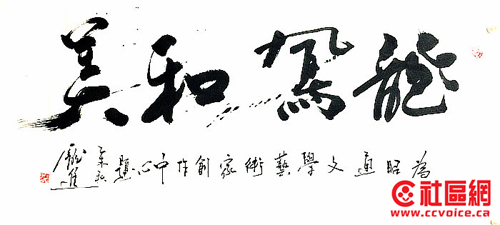 龍鳳和美
為昭通文學藝術家創作中心題
社區網
www.ccvoice.ca